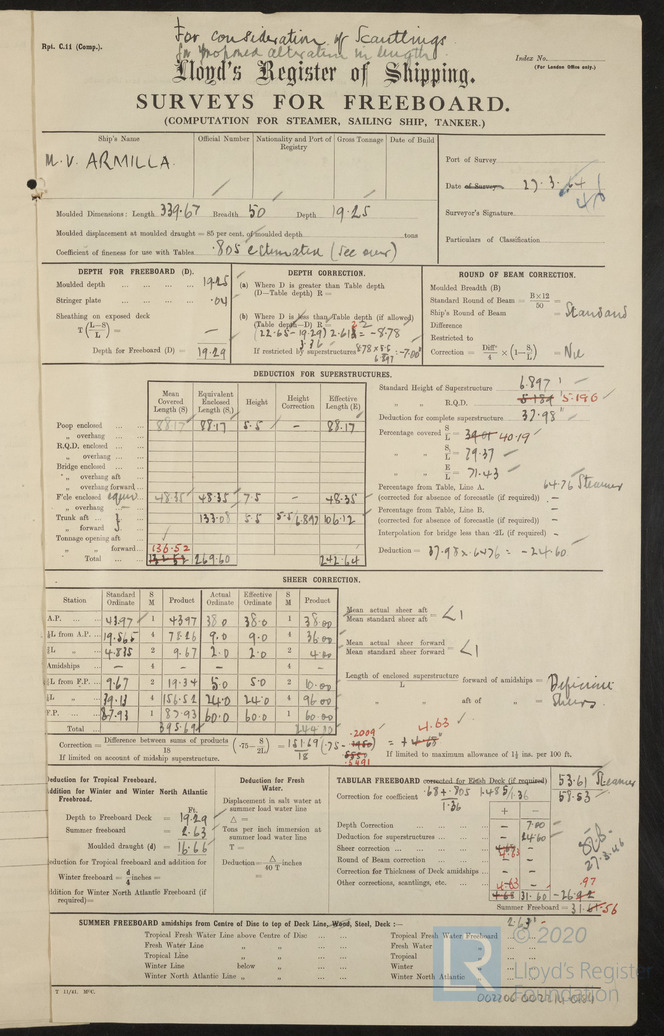 For consideration of Scantlings
for proposed alteration in length
Rpt. C.11 (Comp.).
Index No.
(For London Office only.)
Lloyd's Register of Shipping.
SURVEYS FOR FREEBOARD.
(COMPUTATION FOR STEAMER, SAILING SHIP, TANKER.)
Ship's Name Official Number Nationality and Port of Registry Gross Tonnage Date of Build
M.V. ARMILLA.
Port of Survey
Date of Survey 27.3.
Surveyor's Signature
Particulars of Classification
Moulded Dimensions: Length 339.67 Breadth 50 Depth 19.25
Moulded displacement at moulded draught = 85 per cent. of moulded depth tons
Coefficient of fineness for use with Tables .805 estimated (see over)
DEPTH FOR FREEBOARD (D).
Moulded depth 19.25
Stringer plate .04
Sheathing on exposed deck
T (L-S/L) = —
Depth for Freeboard (D) = 19.29
DEPTH CORRECTION.
(a) Where D is greater than Table depth
(D—Table depth) R =
(b) Where D is less than Table depth (if allowed)
(Table depth—D) R =
(22.65 - 19.29) 2.61 = -8.78
3.36
If restricted by superstructures 8.78 × 5.5 / 6.897 = -7.00"
ROUND OF BEAM CORRECTION.
Moulded Breadth (B)
Standard Round of Beam = B×12/50 =
Ship's Round of Beam = Standard
Difference
Restricted to
Correction = Diff/4 × (1-S/L) = Nil
DEDUCTION FOR SUPERSTRUCTURES.
Mean Covered Length (S) Equivalent Enclosed Length (S₁) Height Height Correction Effective Length (E)
Poop enclosed 88.17 88.17 5.5 — 88.17
„ overhang
R.Q.D. enclosed
„ overhang
Bridge enclosed
„ overhang aft
„ overhang forward
F'cle enclosed equiv. 48.35 48.35 7.5 — 48.35
„ overhang
Trunk aft 133.08 5.5 5.5/6.897 106.12
„ forward
Tonnage opening aft
„ „ forward
136.52
Total 269.60 242.64
Standard Height of Superstructure 6.897'
„ „ R.Q.D. 5.189 5.190
Deduction for complete superstructure 37.98"
Percentage covered S/L = 40.19
„ S₁/L = 79.37
„ E/L = 71.43
Percentage from Table, Line A. 64.76 Steamer
(corrected for absence of forecastle (if required)) —
Percentage from Table, Line B.
(corrected for absence of forecastle (if required)) —
Interpolation for bridge less than ·2L (if required) —
Deduction = 37.98 × .6476 = -24.60
SHEER CORRECTION.
Station Standard Ordinate S M Product Actual Ordinate Effective Ordinate S M Product
A.P. 43.97 1 43.97 38.0 38.0 1 38.00
⅙L from A.P. 19.565 4 78.26 9.0 9.0 4 36.00
⅓L „ 4.835 2 9.67 2.0 2.0 2 4.00
Amidships — 4 — — — 4 —
⅓L from F.P. 9.67 2 19.34 5.0 5.0 2 10.00
⅙L „ 39.13 4 156.52 24.0 24.0 4 96.00
F.P. 87.93 1 87.93 60.0 60.0 1 60.00
Total 395.69 244.00
Mean actual sheer aft / Mean standard sheer aft = <1
Mean actual sheer forward / Mean standard sheer forward = <1
Length of enclosed superstructure / L forward of amidships = Deficient
„ „ aft of „ = Sheers.
Correction = Difference between sums of products / 18 (·75 - S/2L) = 151.69/18 (.75 - .2009) = + 4.63
.5491
If limited on account of midship superstructure. If limited to maximum allowance of 1½ ins. per 100 ft.
Deduction for Tropical Freeboard.
Addition for Winter and Winter North Atlantic Freeboard.
Ft.
Depth to Freeboard Deck = 19.29
Summer freeboard = 2.63
Moulded draught (d) = 16.66
Deduction for Tropical freeboard and addition for
Winter freeboard = d/4 inches =
Addition for Winter North Atlantic Freeboard (if required) =
Deduction for Fresh Water.
Displacement in salt water at summer load water line
Δ =
Tons per inch immersion at summer load water line
T =
Deduction = Δ/40 T inches
=
TABULAR FREEBOARD corrected for Flush Deck (if required) 53.61 Steamer
Correction for coefficient .68 + .805 / 1.36 1.485/1.36 58.53
+ -
Depth Correction — 7.00
Deduction for superstructures — 24.60
Sheer correction 4.63 —
Round of Beam correction — —
Correction for Thickness of Deck amidships — —
Other corrections, scantlings, etc. — —
4.63 31.60 -26.97
Summer Freeboard = 31.56
2.63'
27.3.46
SUMMER FREEBOARD amidships from Centre of Disc to top of Deck Line, Wood, Steel, Deck :—
Tropical Fresh Water Line above Centre of Disc Tropical Fresh Water Freeboard
Fresh Water Line „ „ Fresh Water „
Tropical Line „ „ Tropical „
Winter Line below „ Winter „
Winter North Atlantic Line „ „ Winter North Atlantic „
T 11/41. MᶜC.
© 2020
LR
Lloyd's Register
Foundation